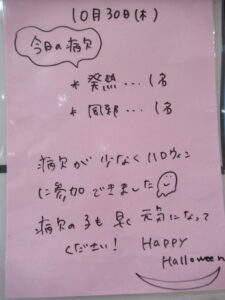 10月30日(木)
今日の病欠
* 発熱...1名
* 同郷...1名
病欠が少なくハロウィン
に参加できました
病欠の子も早く元気になって
ください! Happy
Halloween